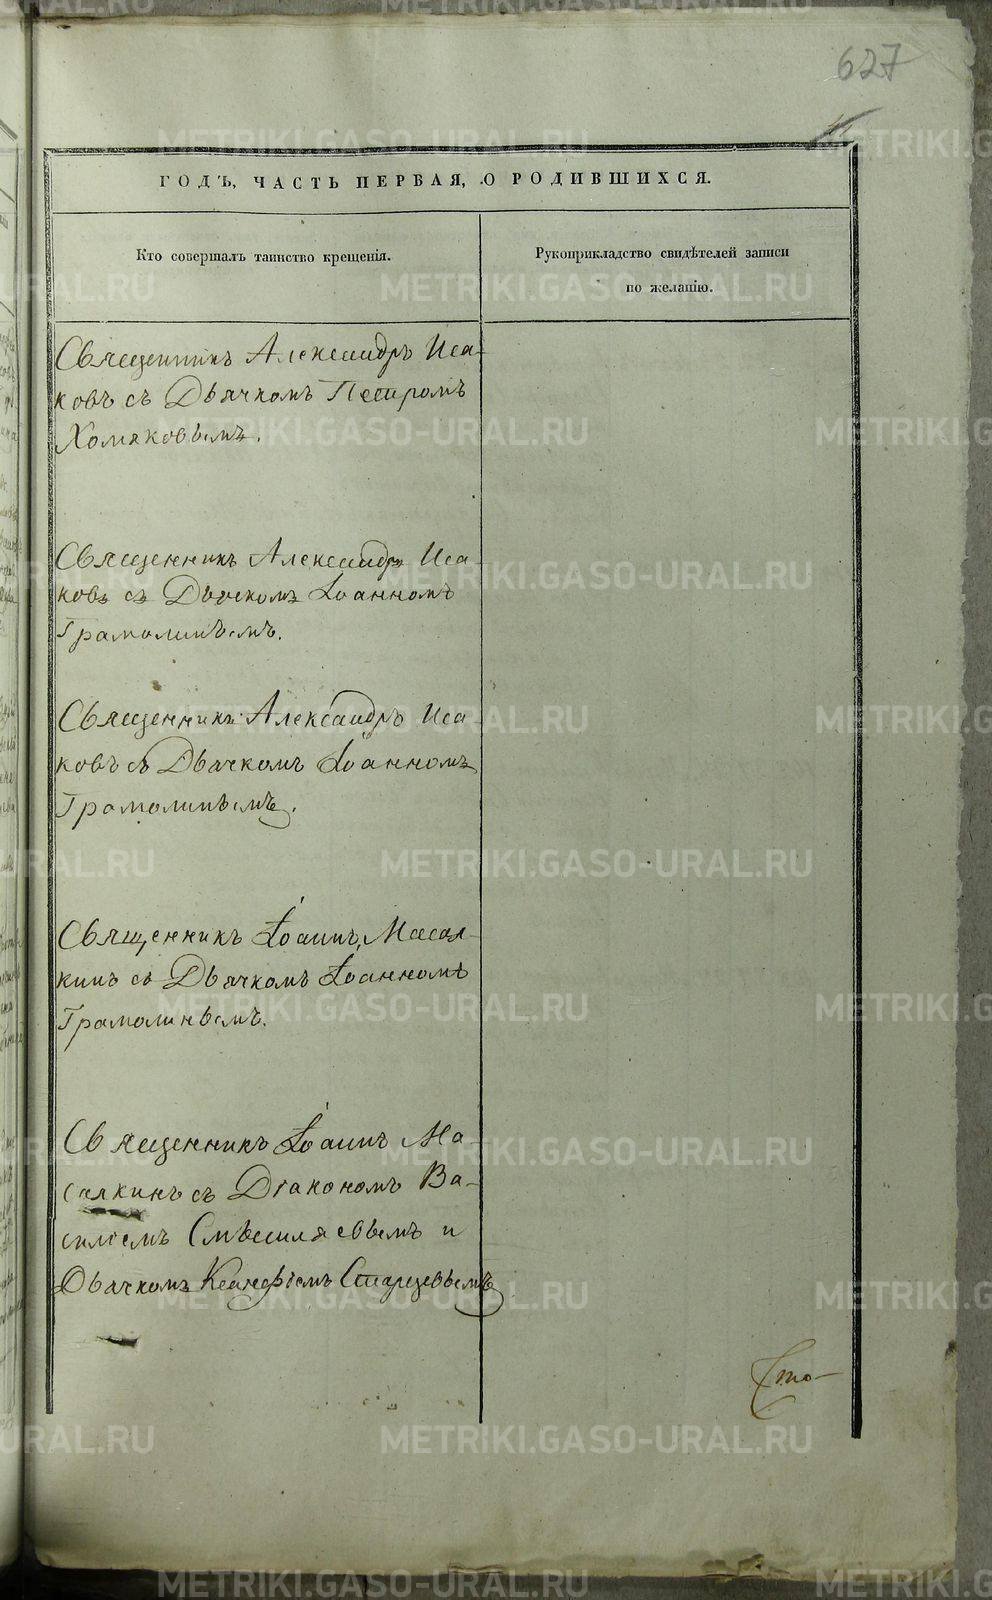 627
ГОДЪ, ЧАСТЬ ПЕРВАЯ, О РОДИВШИХСЯ.
Кто совершалъ таинство крещенія.
Рукоприкладство свидѣтелей записи
по желанію.
Священникъ Александръ Иса-
ковъ съ Дьячкомъ Петромъ
Хомяковымъ.
Священникъ Александръ Иса-
ковъ съ Дьячкомъ Іоанномъ
Грамолинымъ.
Священникъ Александръ Иса-
ковъ съ Дьячкомъ Іоанномъ
Грамолинымъ.
Священникъ Іоаннъ Масал-
кинъ съ Дьячкомъ Іоанномъ
Грамолинымъ.
Священникъ Іоаннъ Ма-
салкинъ съ Діакономъ Ва-
силіемъ Смѣшиляевымъ и
Дьячкомъ Ксенофіемъ Старцевымъ
METRIKI.GASO-URAL.RU